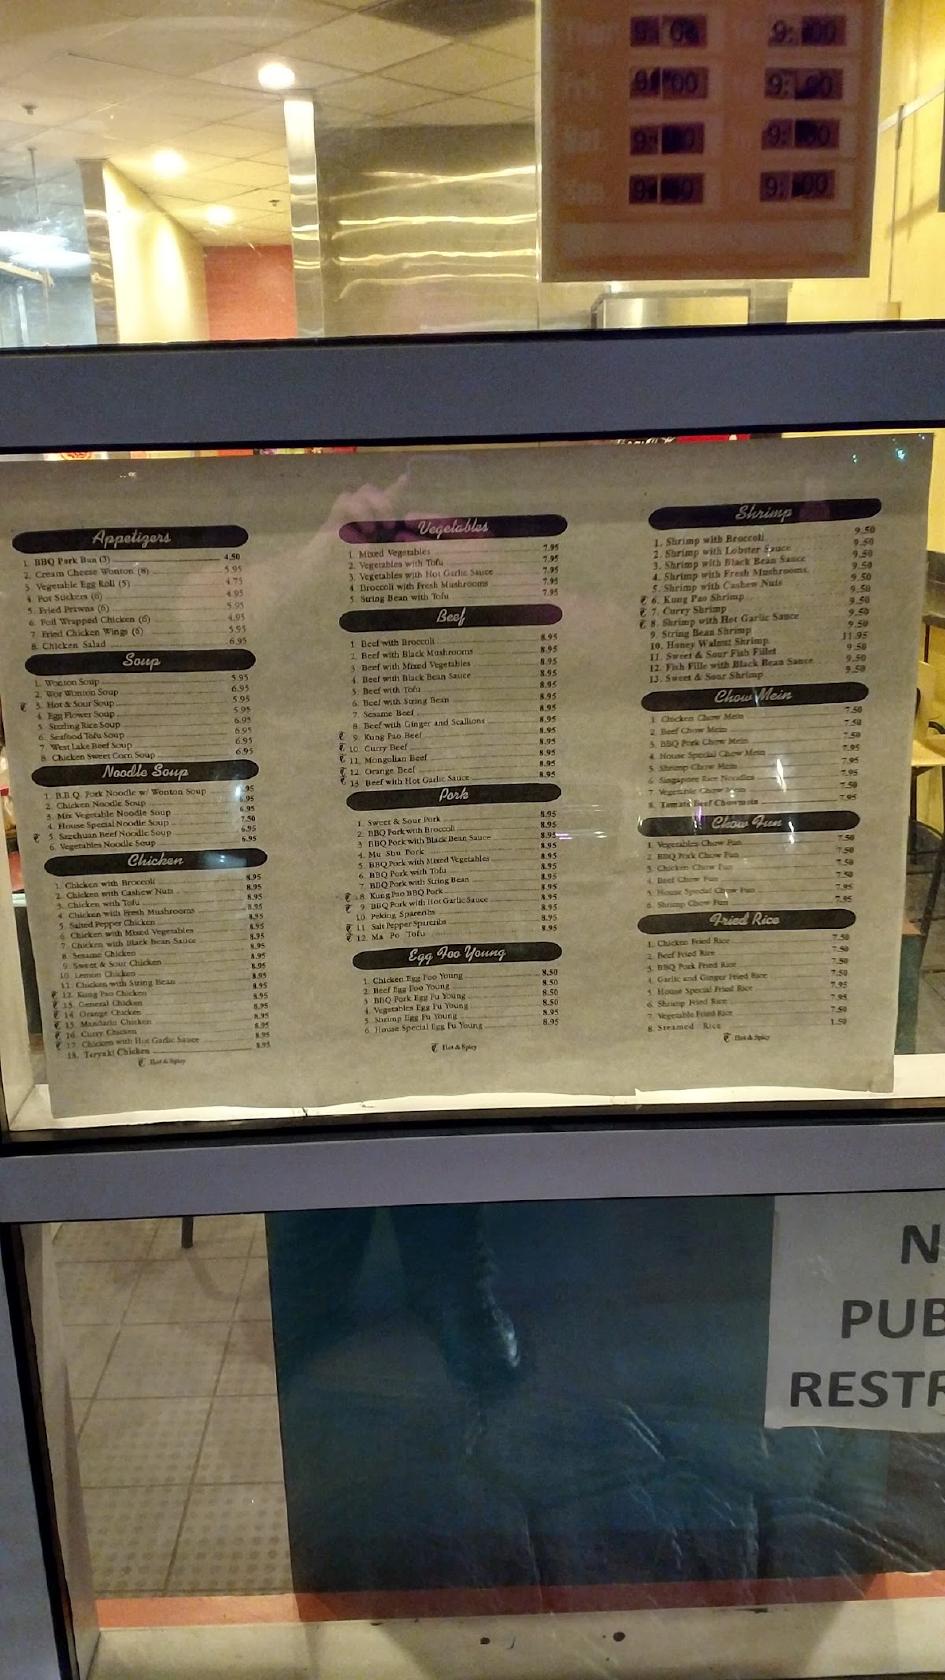 9:00 9:00
9:00 9:00
9:00 9:00
9:00 9:00
Appetizers
1. BBQ Pork Bun (3) 4.50
2. Cream Cheese Wonton (8) 5.95
3. Vegetable Egg Roll (5) 4.75
4. Pot Stickers (6) 4.95
5. Fried Prawns (6) 5.95
6. Foil Wrapped Chicken (6) 4.95
7. Fried Chicken Wings (6) 5.95
8. Chicken Salad 6.95
Soup
1. Wonton Soup 5.95
2. Wor Wonton Soup 6.95
3. Hot & Sour Soup 5.95
4. Egg Flower Soup 5.95
5. Sizzling Rice Soup 6.95
6. Seafood Tofu Soup 6.95
7. West Lake Beef Soup 6.95
8. Chicken Sweet Corn Soup 6.95
Noodle Soup
1. B.B.Q. Pork Noodle w/ Wonton Soup .95
2. Chicken Noodle Soup 6.95
3. Mix Vegetable Noodle Soup 6.95
4. House Special Noodle Soup 7.50
5. Szechuan Beef Noodle Soup 6.95
6. Vegetables Noodle Soup 6.95
Chicken
1. Chicken with Broccoli 8.95
2. Chicken with Cashew Nuts 8.95
3. Chicken with Tofu 8.95
4. Chicken with Fresh Mushrooms 8.95
5. Salted Pepper Chicken 8.95
6. Chicken with Mixed Vegetables 8.95
7. Chicken with Black Bean Sauce 8.95
8. Sesame Chicken 8.95
9. Sweet & Sour Chicken 8.95
10. Lemon Chicken 8.95
11. Chicken with String Bean 8.95
12. Kung Pao Chicken 8.95
13. General Chicken 8.95
14. Orange Chicken 8.95
15. Mandarin Chicken 8.95
16. Curry Chicken 8.95
17. Chicken with Hot Garlic Sauce 8.95
18. Teryaki Chicken 8.95
Hot & Spicy
Vegetables
1. Mixed Vegetables 7.95
2. Vegetables with Tofu 7.95
3. Vegetables with Hot Garlic Sauce 7.95
4. Broccoli with Fresh Mushrooms 7.95
5. String Bean with Tofu 7.95
Beef
1. Beef with Broccoli 8.95
2. Beef with Black Mushrooms 8.95
3. Beef with Mixed Vegetables 8.95
4. Beef with Black Bean Sauce 8.95
5. Beef with Tofu 8.95
6. Beef with String Bean 8.95
7. Sesame Beef 8.95
8. Beef with Ginger and Scallions 8.95
9. Kung Pao Beef 8.95
10. Curry Beef 8.95
11. Mongolian Beef 8.95
12. Orange Beef 8.95
13. Beef with Hot Garlic Sauce 8.95
Pork
1. Sweet & Sour Pork 8.95
2. BBQ Pork with Broccoli 8.95
3. BBQ Pork with Black Bean Sauce 8.95
4. Mu Shu Pork 8.95
5. BBQ Pork with Mixed Vegetables 8.95
6. BBQ Pork with Tofu 8.95
7. BBQ Pork with String Bean 8.95
8. Kung Pao BBQ Pork 8.95
9. BBQ Pork with Hot Garlic Sauce 8.95
10. Peking Spareribs 8.95
11. Salt Pepper Spareribs 8.95
12. Ma Po Tofu 8.95
Egg Foo Young
1. Chicken Egg Foo Young 8.50
2. Beef Egg Foo Young 8.50
3. BBQ Pork Egg Fu Young 8.50
4. Vegetables Egg Fu Young 8.50
5. Shrimp Egg Fu Young 8.95
6. House Special Egg Fu Young 8.95
Hot & Spicy
Shrimp
1. Shrimp with Broccoli 9.50
2. Shrimp with Lobster Sauce 9.50
3. Shrimp with Black Bean Sauce 9.50
4. Shrimp with Fresh Mushrooms 9.50
5. Shrimp with Cashew Nuts 9.50
6. Kung Pao Shrimp 9.50
7. Curry Shrimp 9.50
8. Shrimp with Hot Garlic Sauce 9.50
9. String Bean Shrimp 9.50
10. Honey Walnut Shrimp 11.95
11. Sweet & Sour Fish Fillet 9.50
12. Fish Fille with Black Bean Sauce 9.50
13. Sweet & Sour Shrimp 9.50
Chow Mein
1. Chicken Chow Mein 7.50
2. Beef Chow Mein 7.50
3. BBQ Pork Chow Mein 7.50
4. House Special Chow Mein 7.95
5. Shrimp Chow Mein 7.95
6. Singapore Rice Noodles 7.95
7. Vegetable Chow Mein 7.50
8. Tomato Beef Chowmein 7.95
Chow Fun
1. Vegetables Chow Fun 7.50
2. BBQ Pork Chow Fun 7.50
3. Chicken Chow Fun 7.50
4. Beef Chow Fun 7.50
5. House Special Chow Fun 7.95
6. Shrimp Chow Fun 7.95
Fried Rice
1. Chicken Fried Rice 7.50
2. Beef Fried Rice 7.50
3. BBQ Pork Fried Rice 7.50
4. Garlic and Ginger Fried Rice 7.50
5. House Special Fried Rice 7.95
6. Shrimp Fried Rice 7.95
7. Vegetable Fried Rice 7.50
8. Steamed Rice 1.50
Hot & Spicy
N
PUB
RESTR